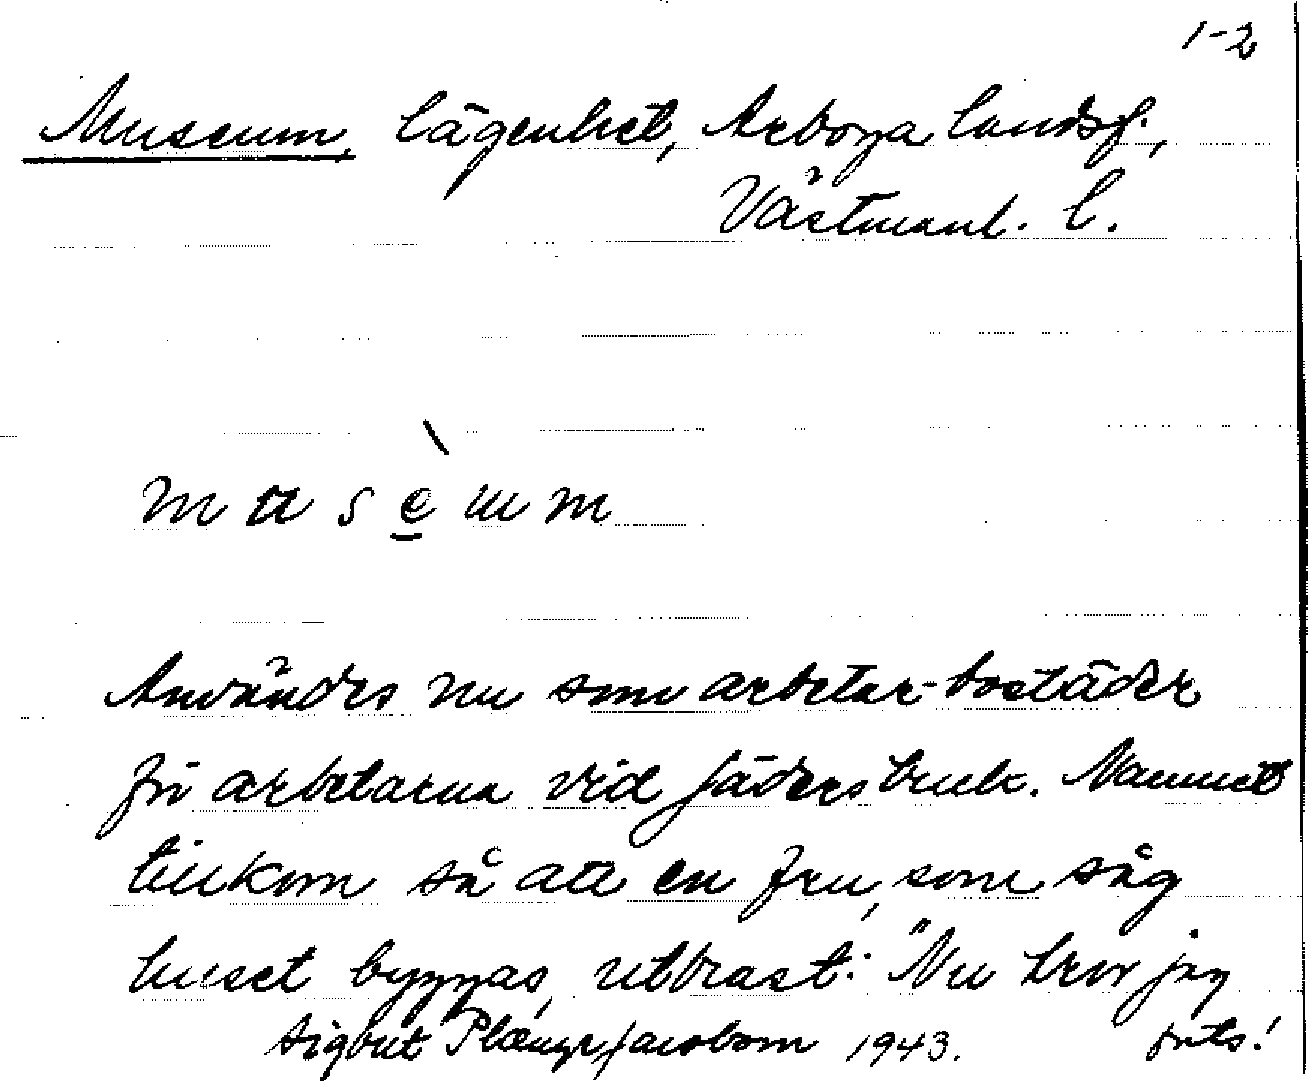 1-2
Museum, lägenhet, Arboga landsf.,
Västmanl. l.
m u s è u m
Användes nu som arbetar-bostäder
för arbetarna vid Jäders bruk. Namnet
tillkom så att en fru, som såg
huset byggas, utbrast: "Nu tror jag
Sigbrit Plænge Jacobson 1943. forts!